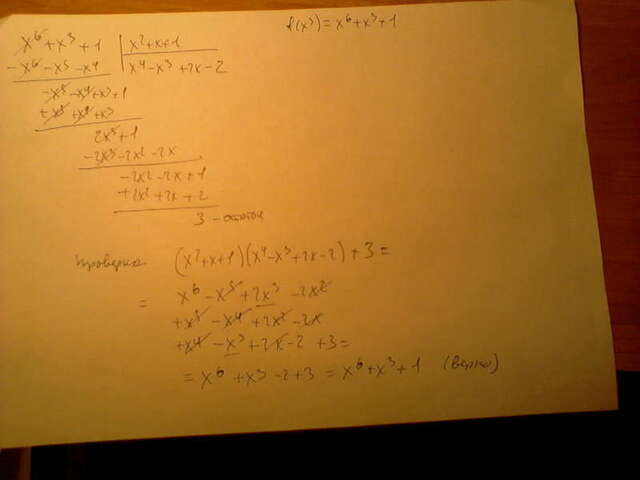 f(x³) = x⁶ + x³ + 1
x⁶ + x³ + 1 | x² + x + 1
- x⁶ - x⁵ - x⁴ | x⁴ - x³ + 2x - 2
- x⁵ - x⁴ + x³ + 1
+ x⁵ + x⁴ + x³
2x³ + 1
- 2x³ - 2x² - 2x
- 2x² - 2x + 1
+ 2x² + 2x + 2
3 - остаток
Проверка (x² + x + 1)(x⁴ - x³ + 2x - 2) + 3 =
= x⁶ - x⁵ + 2x³ - 2x²
+ x⁵ - x⁴ + 2x² - 2x
+ x⁴ - x³ + 2x - 2 + 3 =
= x⁶ + x³ - 2 + 3 = x⁶ + x³ + 1 (верно)